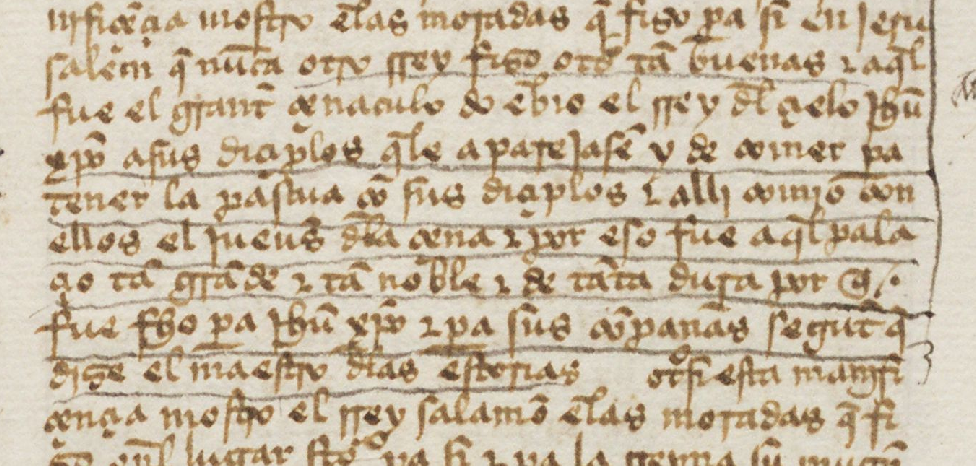 nifiçençia mostro en las moradas q̃ fizo pa si en jeru
salem q̃ nũca otro rrey fizo otro tã buenas ⁊ aq̃l
fue el grant çenaculo do enbio el rrey dl çielo jhũ
xp̃o a sus diçiplos q̃ le aparejasẽ y de comer pa
tener la pascua cõ sus diçiplos ⁊ alli comio con
ellos el jueues dla çena ⁊ por eso fue aq̃l pala
çio tã grãde ⁊ tã noble ⁊ de tãta dura por q̃
fue fho pa jhũ xp̃o ⁊ pa sus cõpanas segunt q̃
dize el maestro dlas estorias otrosi esta manifi
çençia mostro el rrey salamõ en las moradas q̃ fi
lugar pa si ⁊ pa la rreyna su